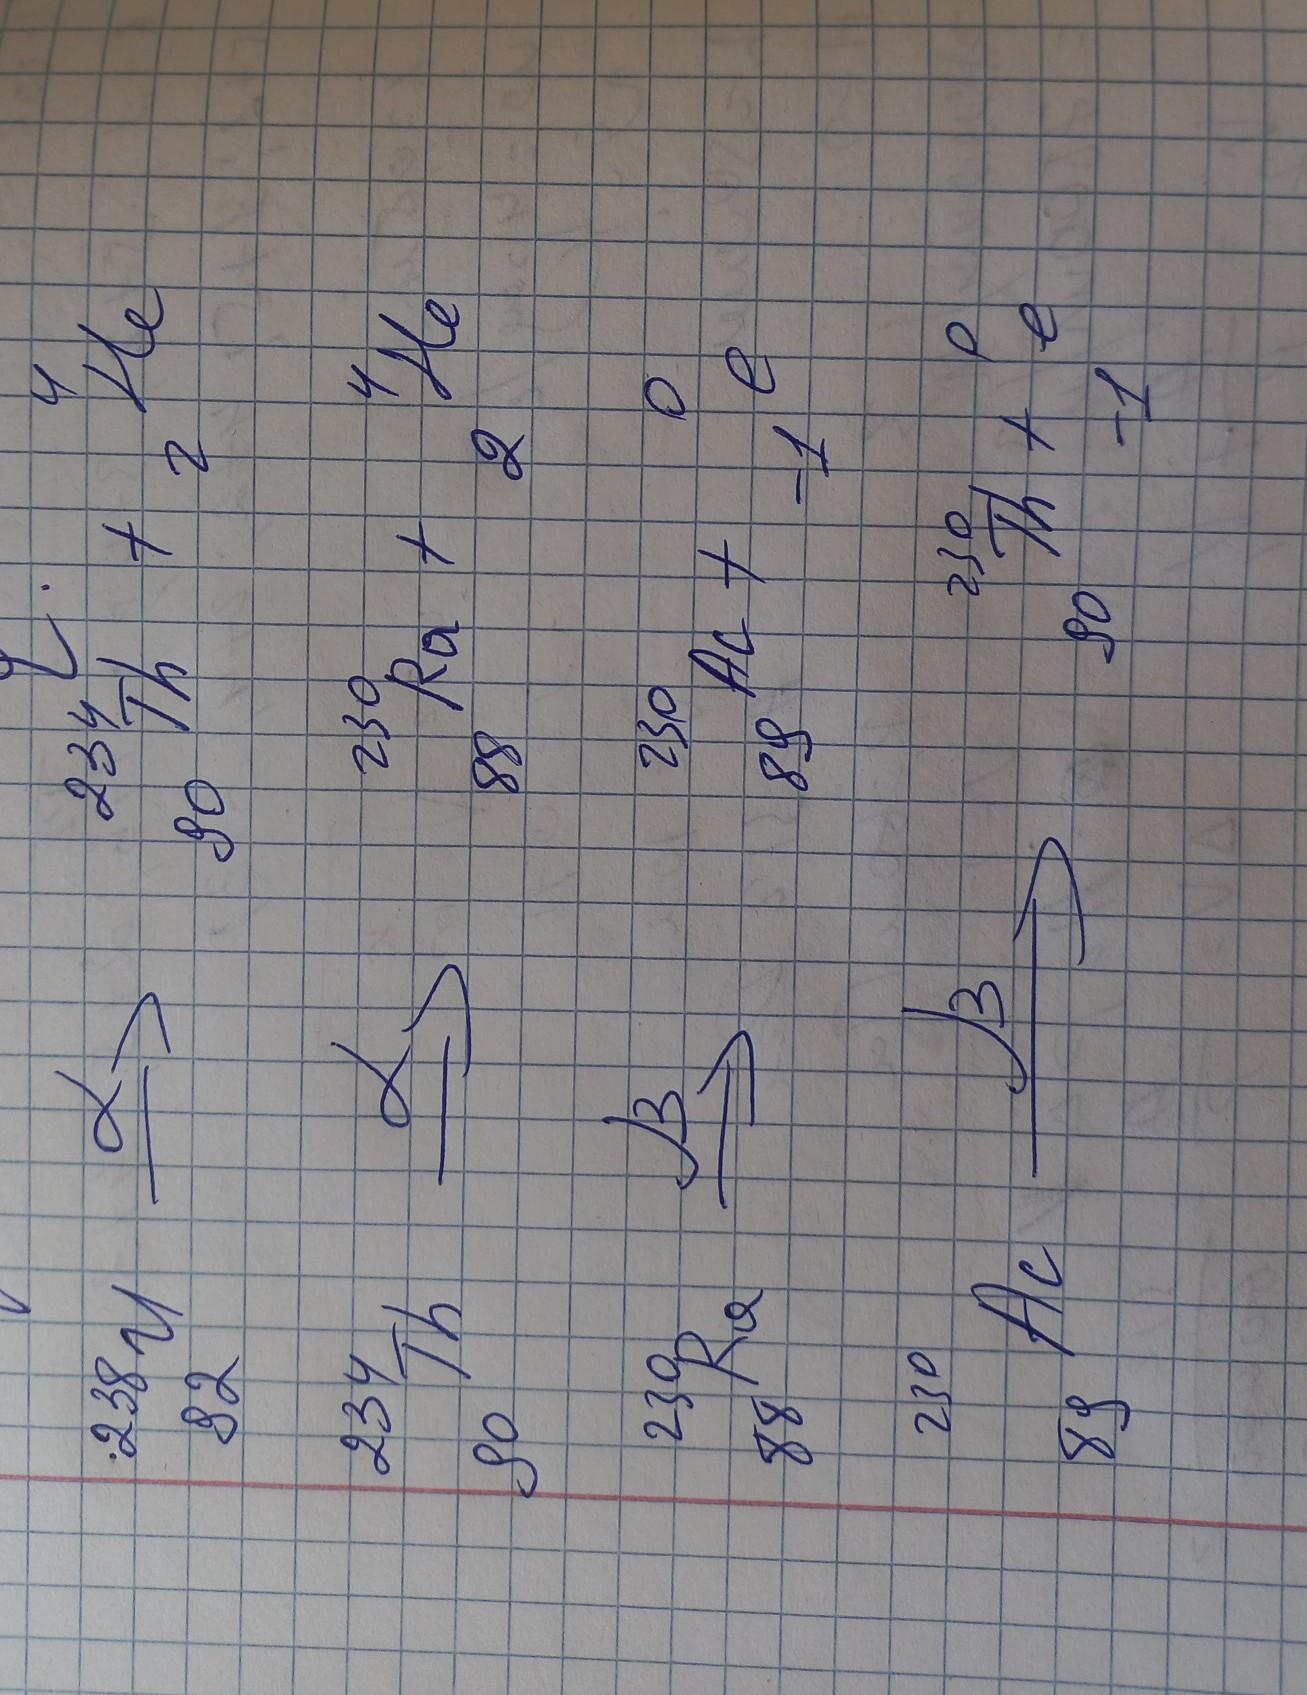 ²³⁸₉₂U α→ ²³⁴₉₀Th + ⁴₂He
²³⁴₉₀Th α→ ²³⁰₈₈Ra + ⁴₂He
²³⁰₈₈Ra β→ ²³⁰₈₉Ac + ⁰₋₁e
²³⁰₈₉Ac β→ ²³⁰₉₀Th + ⁰₋₁e